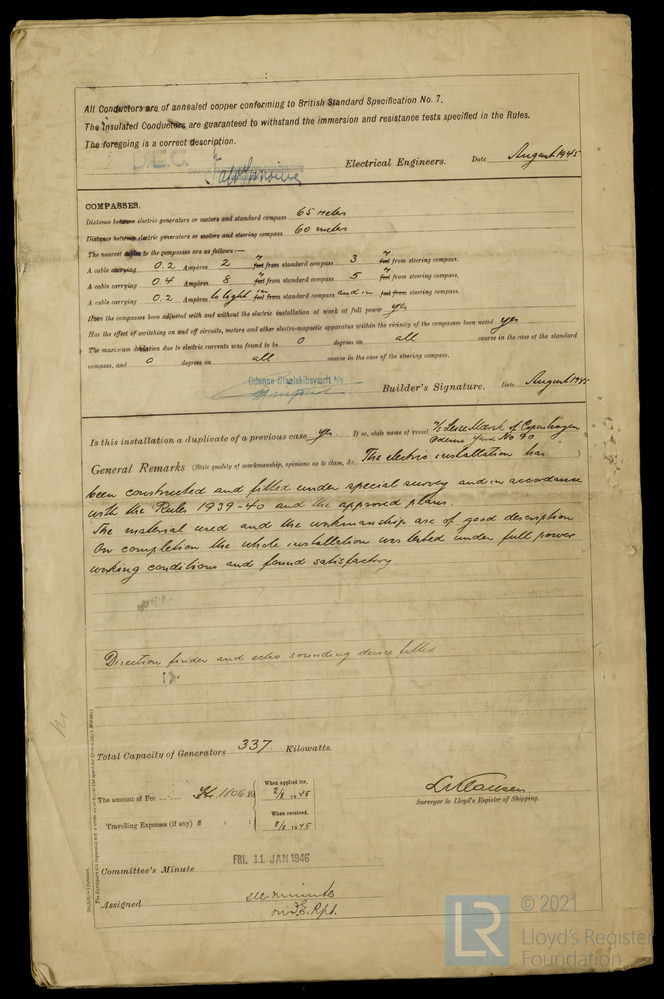 All Conductors are of annealed copper conforming to British Standard Specification No. 7.
The Insulated Conductors are guaranteed to withstand the immersion and resistance tests specified in the Rules.
The foregoing is a correct description.
Electrical Engineers. Date August 1945
COMPASSES.
Distance between electric generators or motors and standard compass 65 meter
Distance between electric generators or motors and steering compass 60 meter
The nearest cables to the compasses are as follows:—
A cable carrying 0.2 Ampères 2 feet from standard compass 3 feet from steering compass.
A cable carrying 0.4 Ampères 8 feet from standard compass 5 feet from steering compass.
A cable carrying 0.2 Ampères to light in feet from standard compass and in feet from steering compass.
Have the compasses been adjusted with and without the electric installation at work at full power yes
Has the effect of switching on and off circuits, motors and other electro-magnetic apparatus within the vicinity of the compasses been noted yes
The maximum deviation due to electric currents was found to be 0 degrees on all course in the case of the standard
compass, and 0 degrees on all course in the case of the steering compass.
Odense Staalskibsværft A/s
Builder's Signature. Date August 1945
Is this installation a duplicate of a previous case yes. If so, state name of vessel M/S Leise Mærsk of Copenhagen
Odense Yard No 90
General Remarks (State quality of workmanship, opinions as to class, &c. The electric installation has
been constructed and fitted under special survey and in accordance
with the Rules 1939-40 and the approved plans.
The material used and the workmanship are of good description
On completion the whole installation was tested under full power
working conditions and found satisfactory.
Direction finder and echo sounding device fitted
Total Capacity of Generators 337. Kilowatts.
The amount of Fee ... Kr. 1106.
When applied for,
2/8 1945
Travelling Expenses (if any) £ : :
When received,
8/8 1945
Surveyor to Lloyd's Register of Shipping.
FRI. 11 JAN 1946
Committee's Minute
Assigned see minute
on F.E. Rpt.
LR
© 2021
Lloyd's Register
Foundation